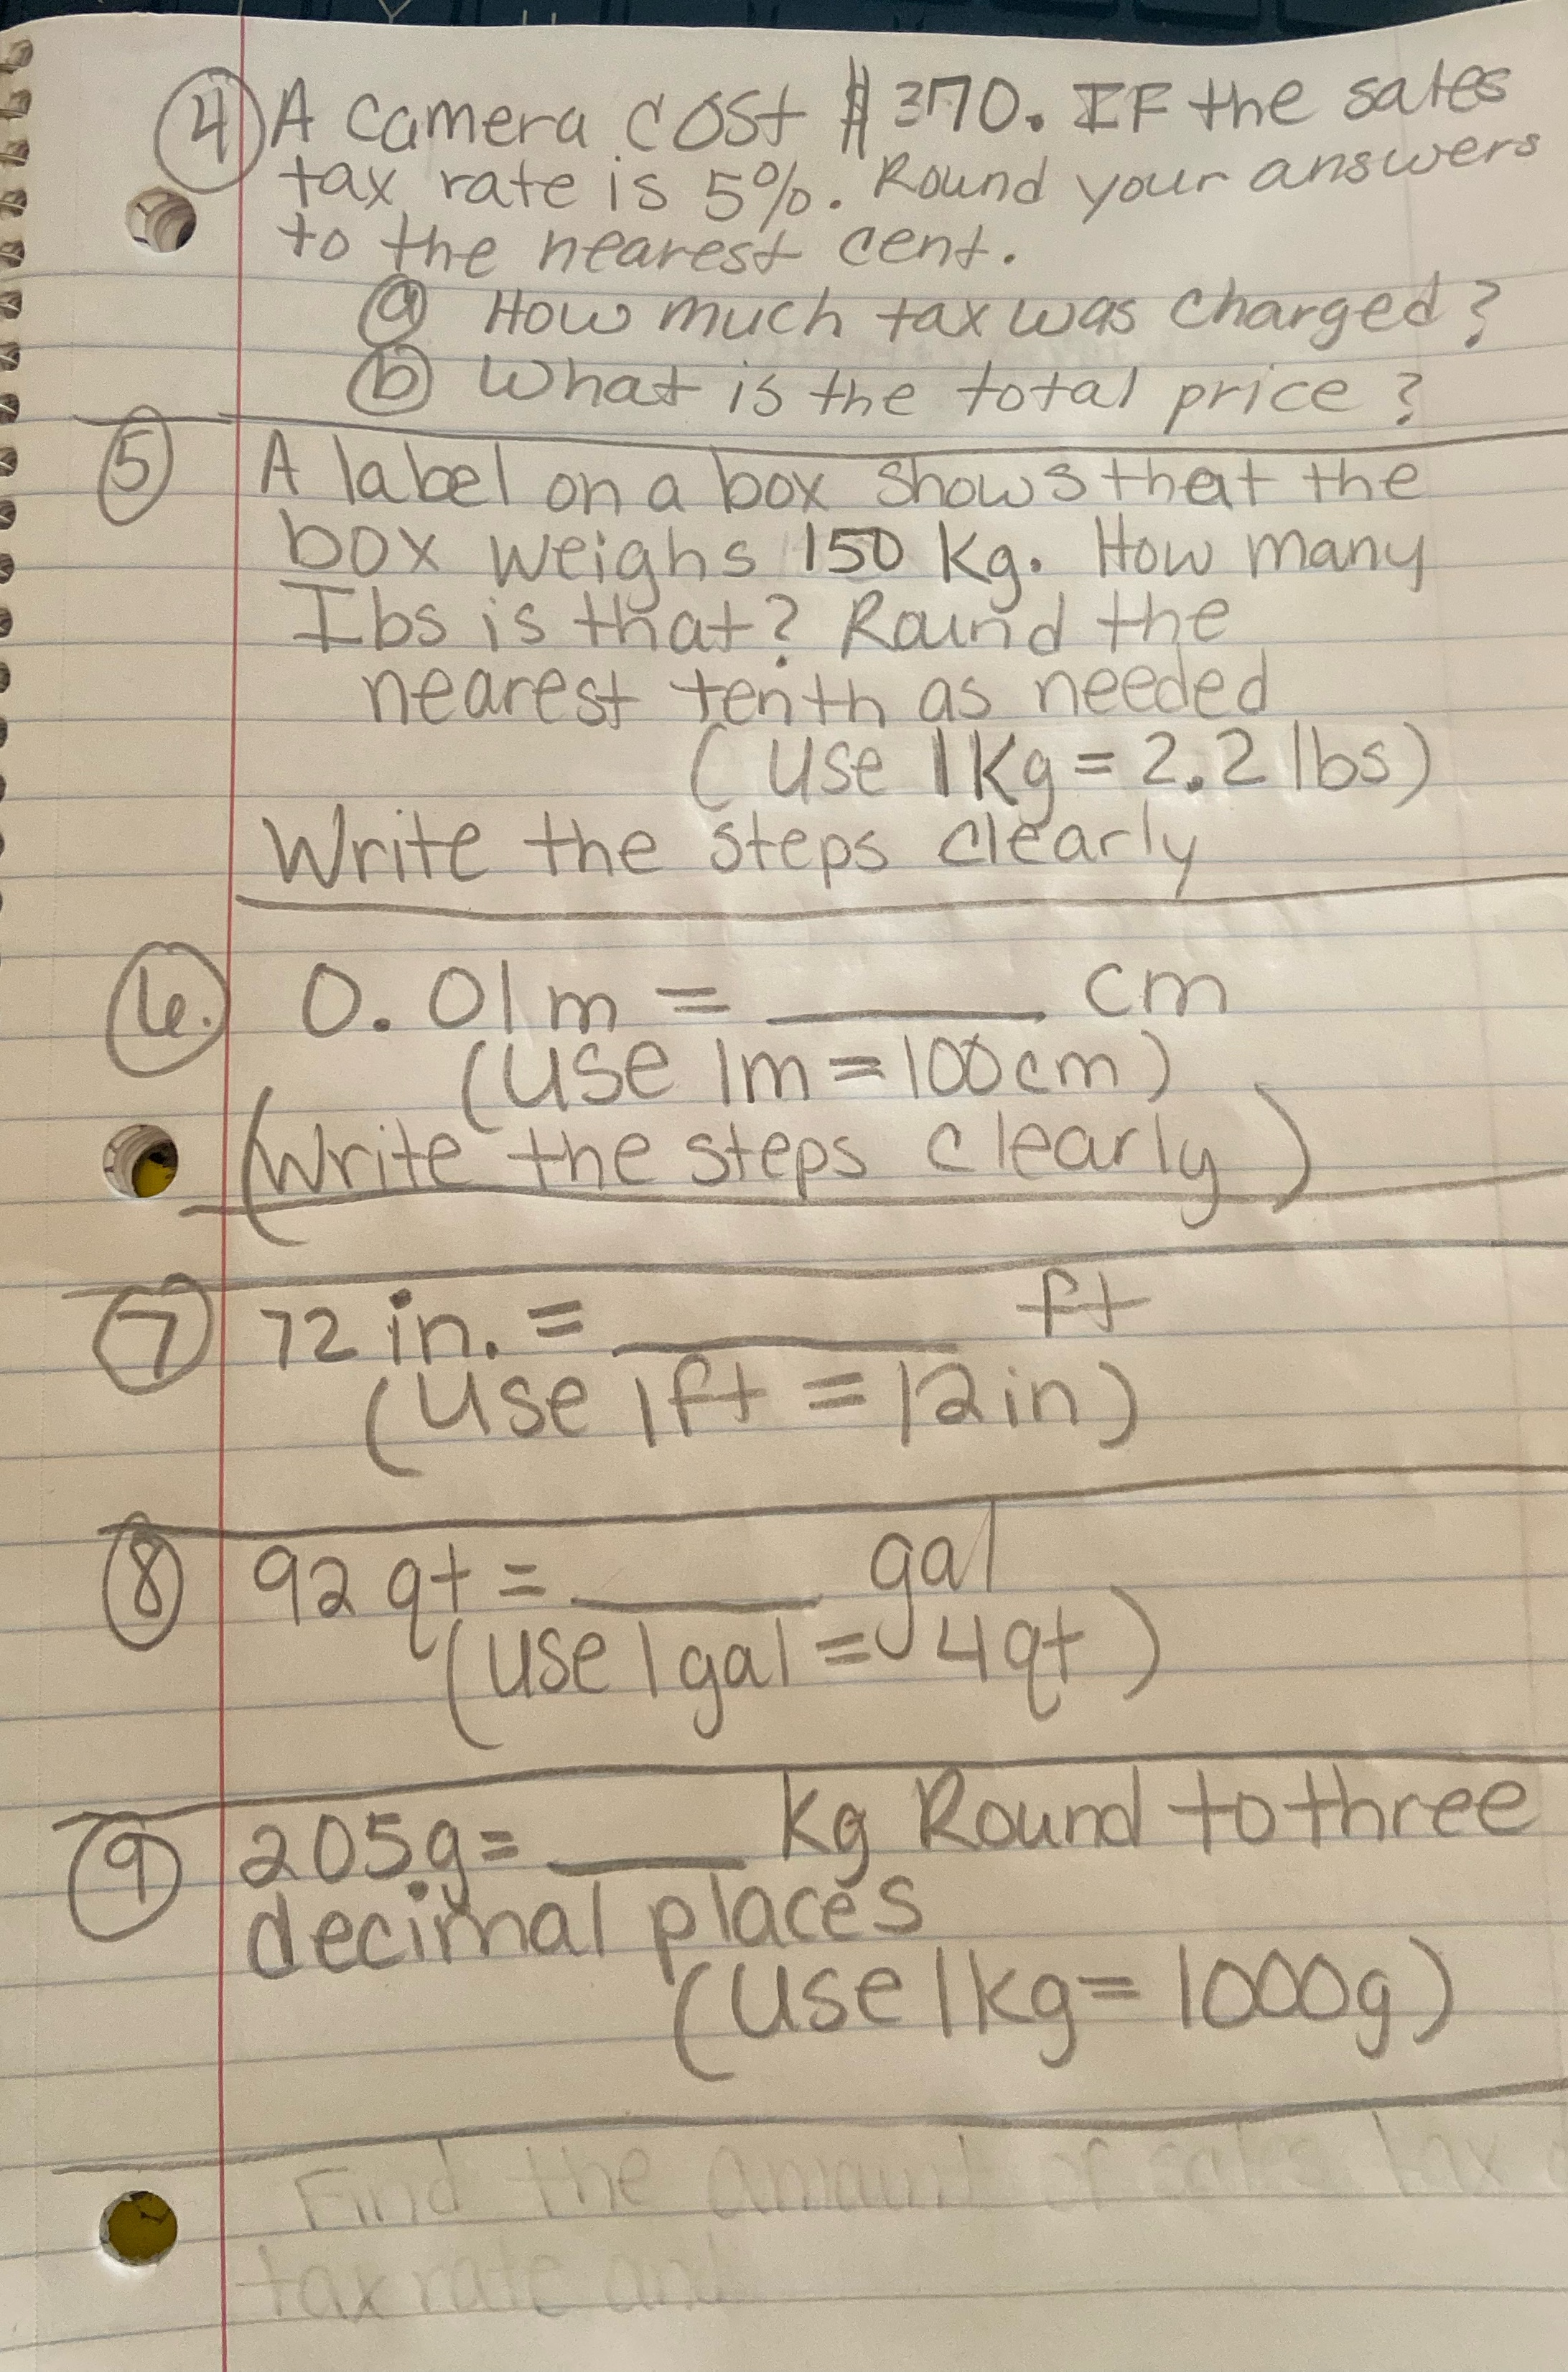 4 A camera cost $370. IF the sales
tax rate is 5%. Round your answers
to the nearest cent.
a How much tax was charged?
b What is the total price?
5 A label on a box shows that the
box weighs 150 kg. How many
Ibs is that? Round the
nearest tenth as needed
(use 1Kg = 2.2 lbs)
Write the steps clearly
6. 0.01m = ____ cm
(use 1m = 100cm)
(Write the steps clearly)
7 72 in. = ____ ft
(use 1ft = 12in)
8 92 qt = ____ gal
(use 1gal = 4qt)
9 205g = ____ kg Round to three
decimal places
(use 1kg = 1000g)
Find the amount of sales tax
tax rate and